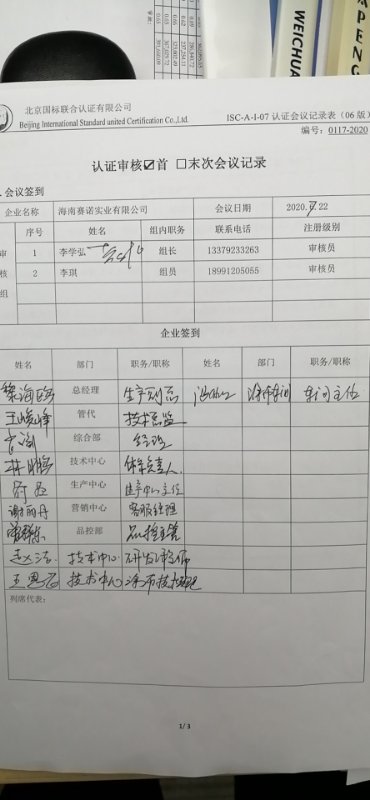 WEICHUA
PENG
北京国标联合认证有限公司
Beijing International Standard united Certification Co.,Ltd.
ISC-A-I-07 认证会议记录表（06 版）
编号：0117-2020
认证审核☑首 □末次会议记录
.会议签到
企业名称 海南赛诺实业有限公司 会议日期 2020. .22
序号 姓名 组内职务 联系电话 注册级别
审核组
1 李学弘 组长 13379233263 审核员
2 李琪 组员 18991205055 审核员
企业签到
姓名 部门 职务/职称 姓名 部门 职务/职称
总经理 生产副总 涂布车间 车间主任
王峻峰 管代 技术总监
综合部 经理
林 技术中心 体系负责人
生产中心 生产中心主任
谢丽丹 营销中心 客服经理
品控部 品控主管
赵洁 技术中心 研发工程师
王恩 技术中心 涂布技术经理
列席代表：
1/3